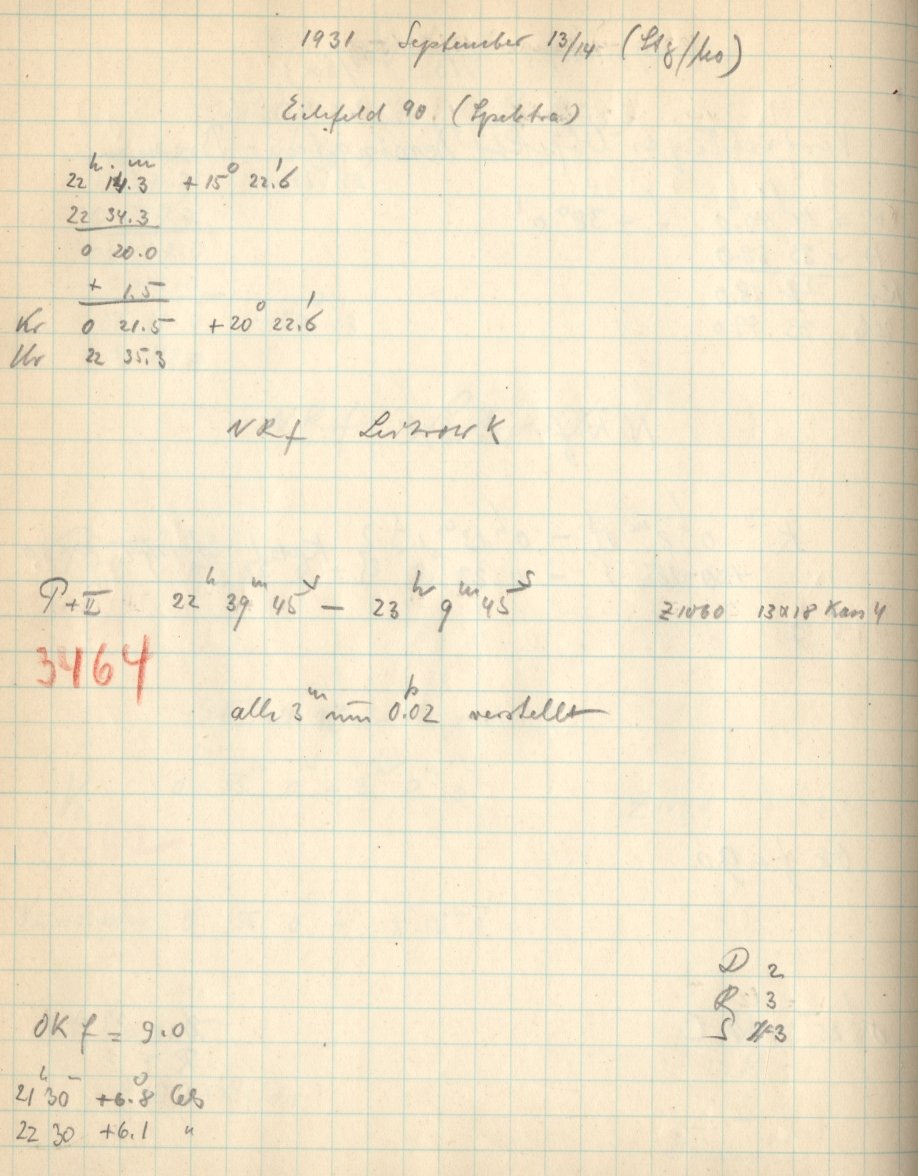 1931 September 13/14 (Stg/Mo)
Eichfeld 90. (Spektra)
22h 14.m3 +15° 22.'6
22 34.3
0 20.0
+ 1.5
Kr 0 21.5 +20° 22.'6
Uhr 22 35.3
NRf Leitrohr K
P+II 22h 39m 45s — 23h 9m 45s Z1060 13x18 Kass 4
3464
alle 3m um 0.p02 verstellt
D 2
R 3
S 3
OK f = 9.0
21h 30m +6.°8 Cels
22 30 +6.1 "